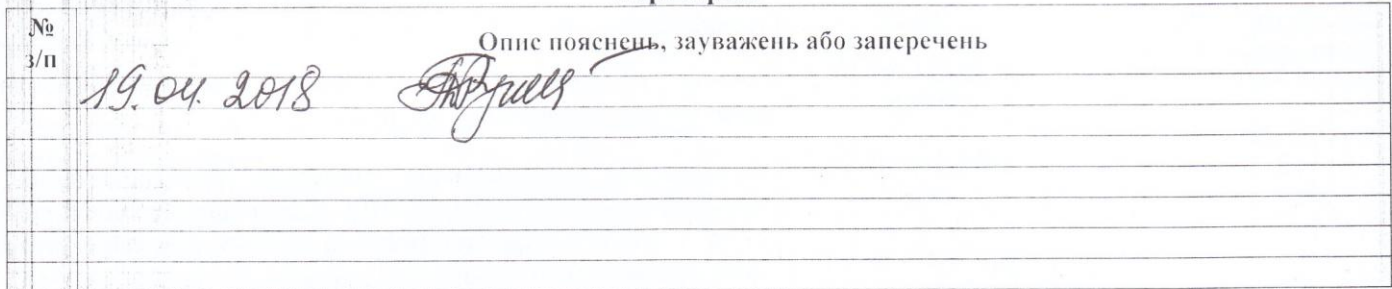 № з/п
Опис пояснень, зауважень або заперечень
19.04.2018